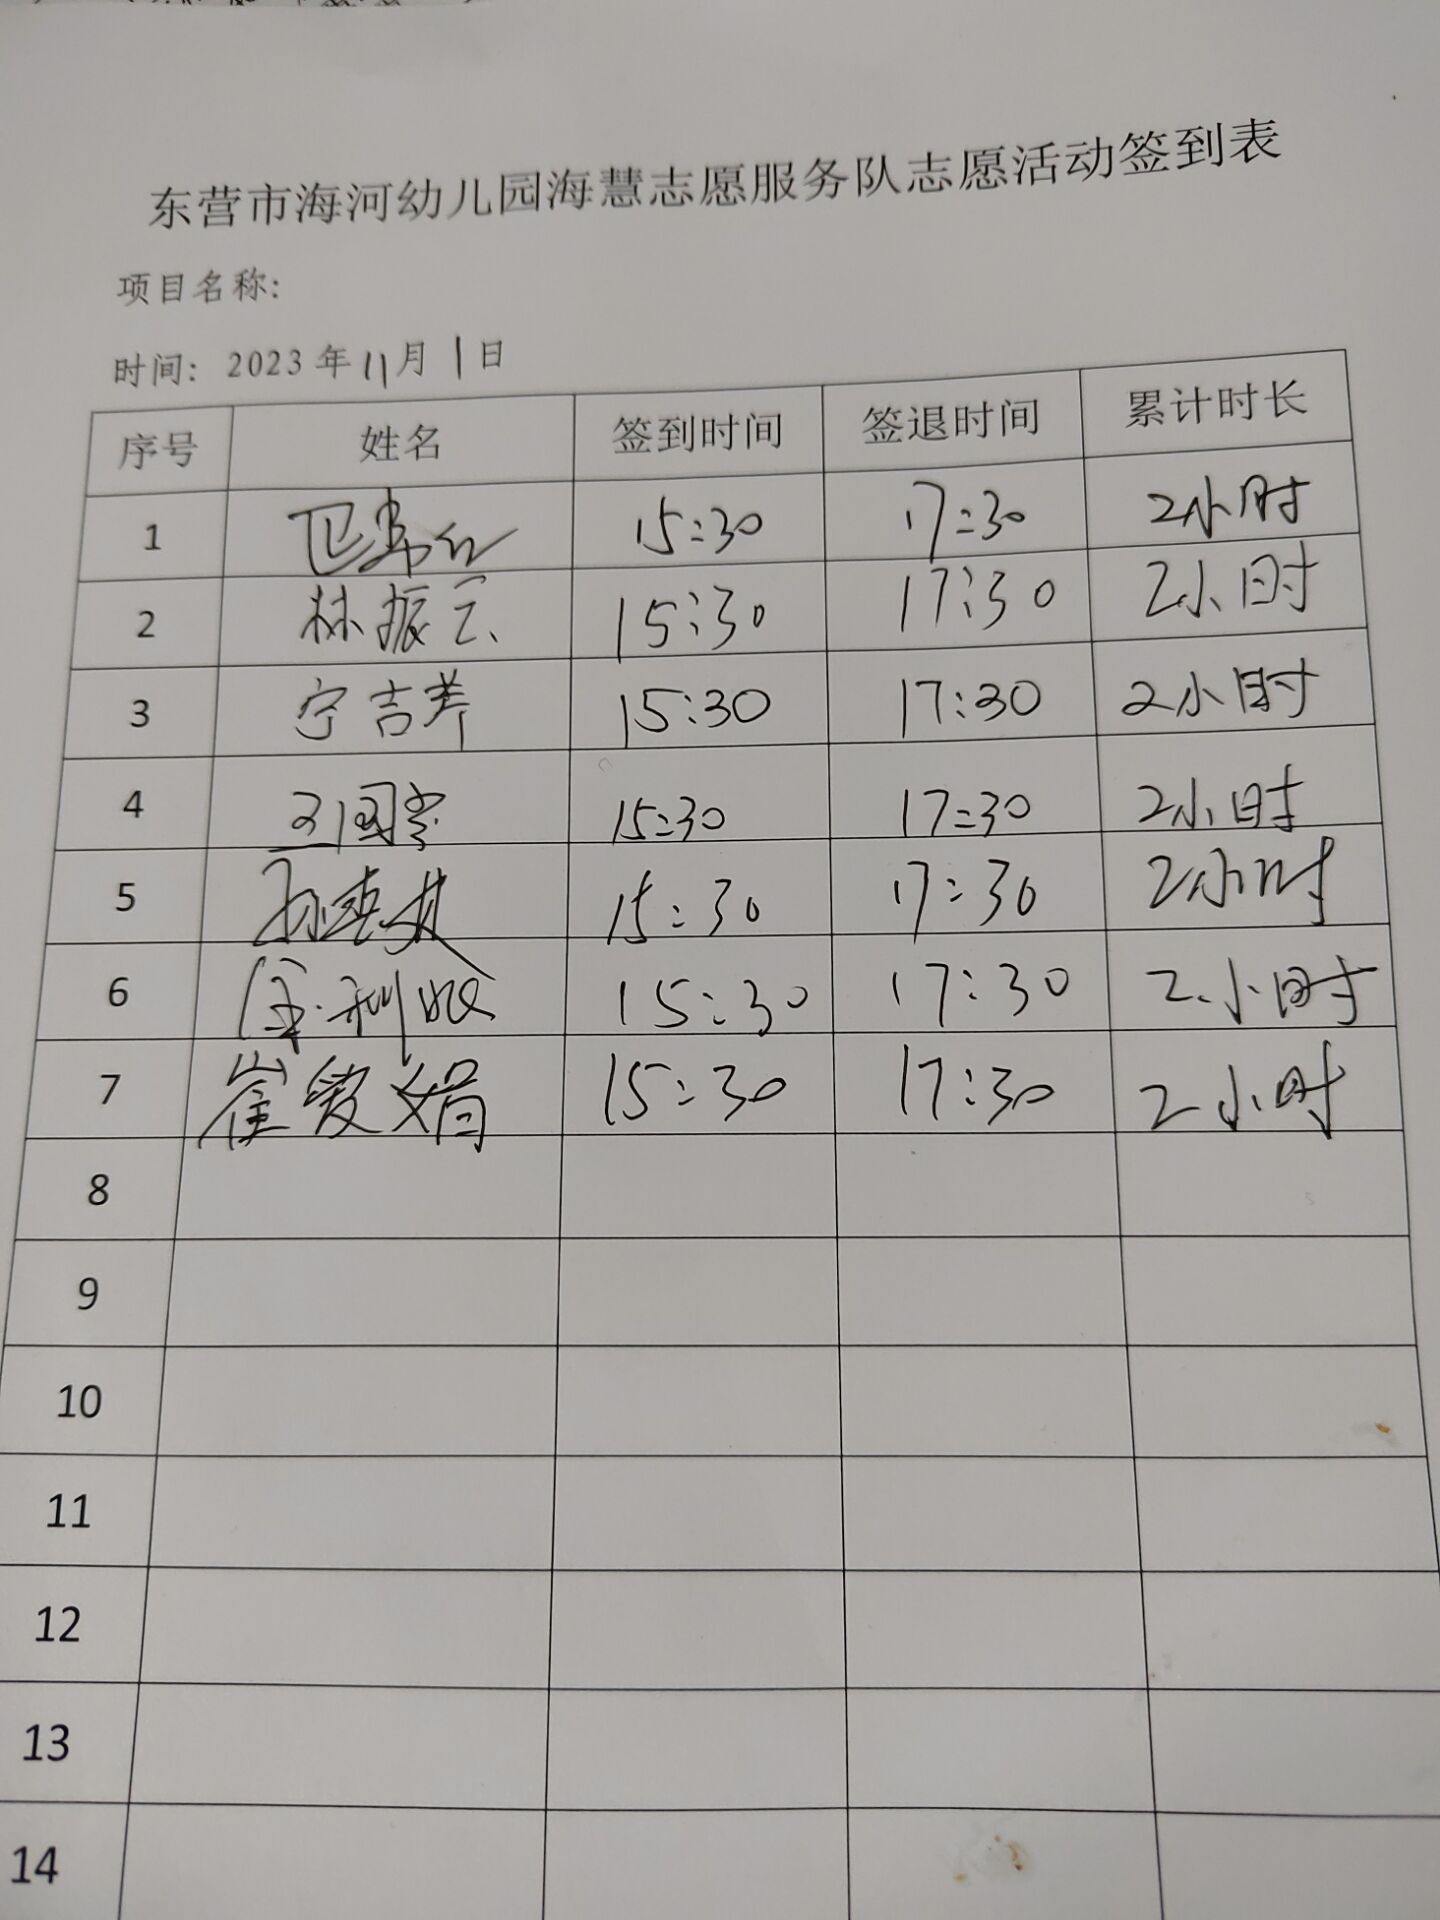 东营市海河幼儿园海慧志愿服务队志愿活动签到表
项目名称:
时间: 2023年11月1日
序号 姓名 签到时间 签退时间 累计时长
1 15:30 17:30 2小时
2 林振云 15:30 17:30 2小时
3 宁吉 15:30 17:30 2小时
4 国 15:30 17:30 2小时
5 15:30 17:30 2小时
6 利 15:30 17:30 2小时
7 崔爱娟 15:30 17:30 2小时
8
9
10
11
12
13
14